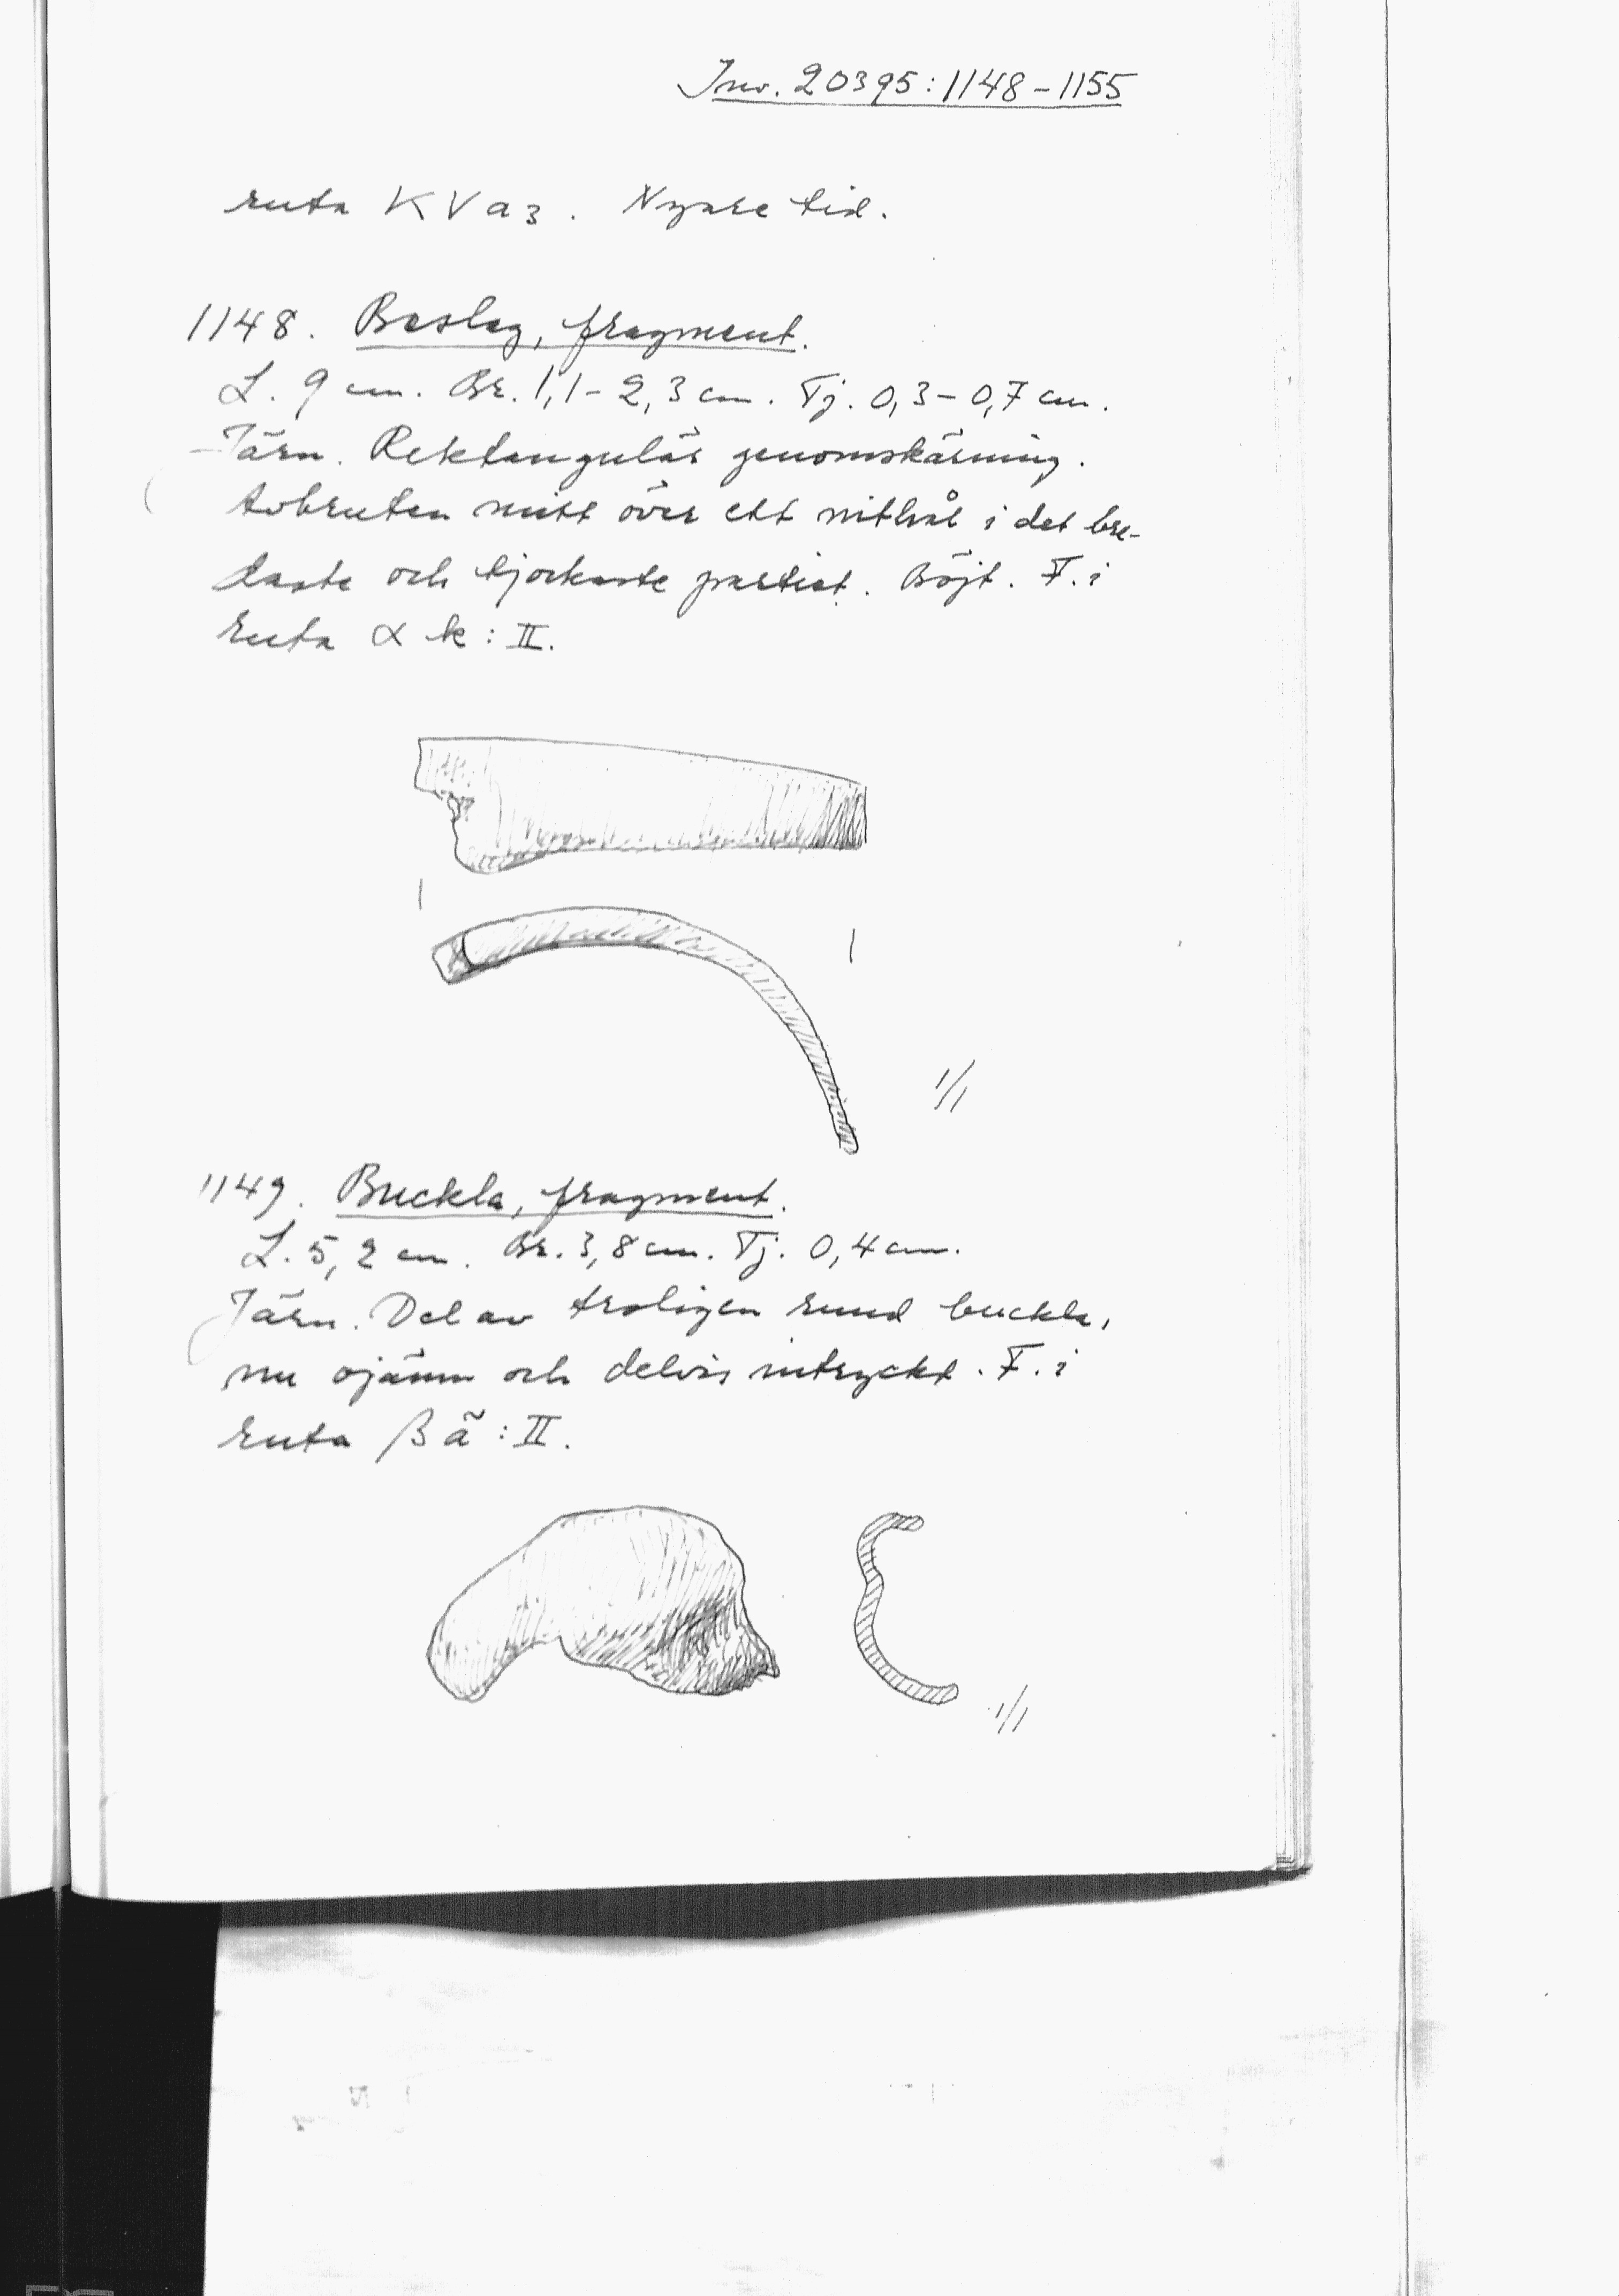 Inv. 20395:1148-1155
ruta KVa3. Nyare tid.
1148. Beslag, fragment.
L. 9 cm. Br. 1,1-2,3 cm. Tj. 0,3-0,7 cm.
Järn. Rektangulär genomskärning.
Avbruten mitt över ett nithål i det bre-
daste och tjockaste partiet. Böjt. F. i
ruta α k:II.
1/1
1149. Buckla, fragment.
L. 5,2 cm. Br. 3,8 cm. Tj. 0,4 cm.
Järn. Del av troligen rund buckla,
nu ojämn och delvis intryckt. F. i
ruta β ä:II.
1/1